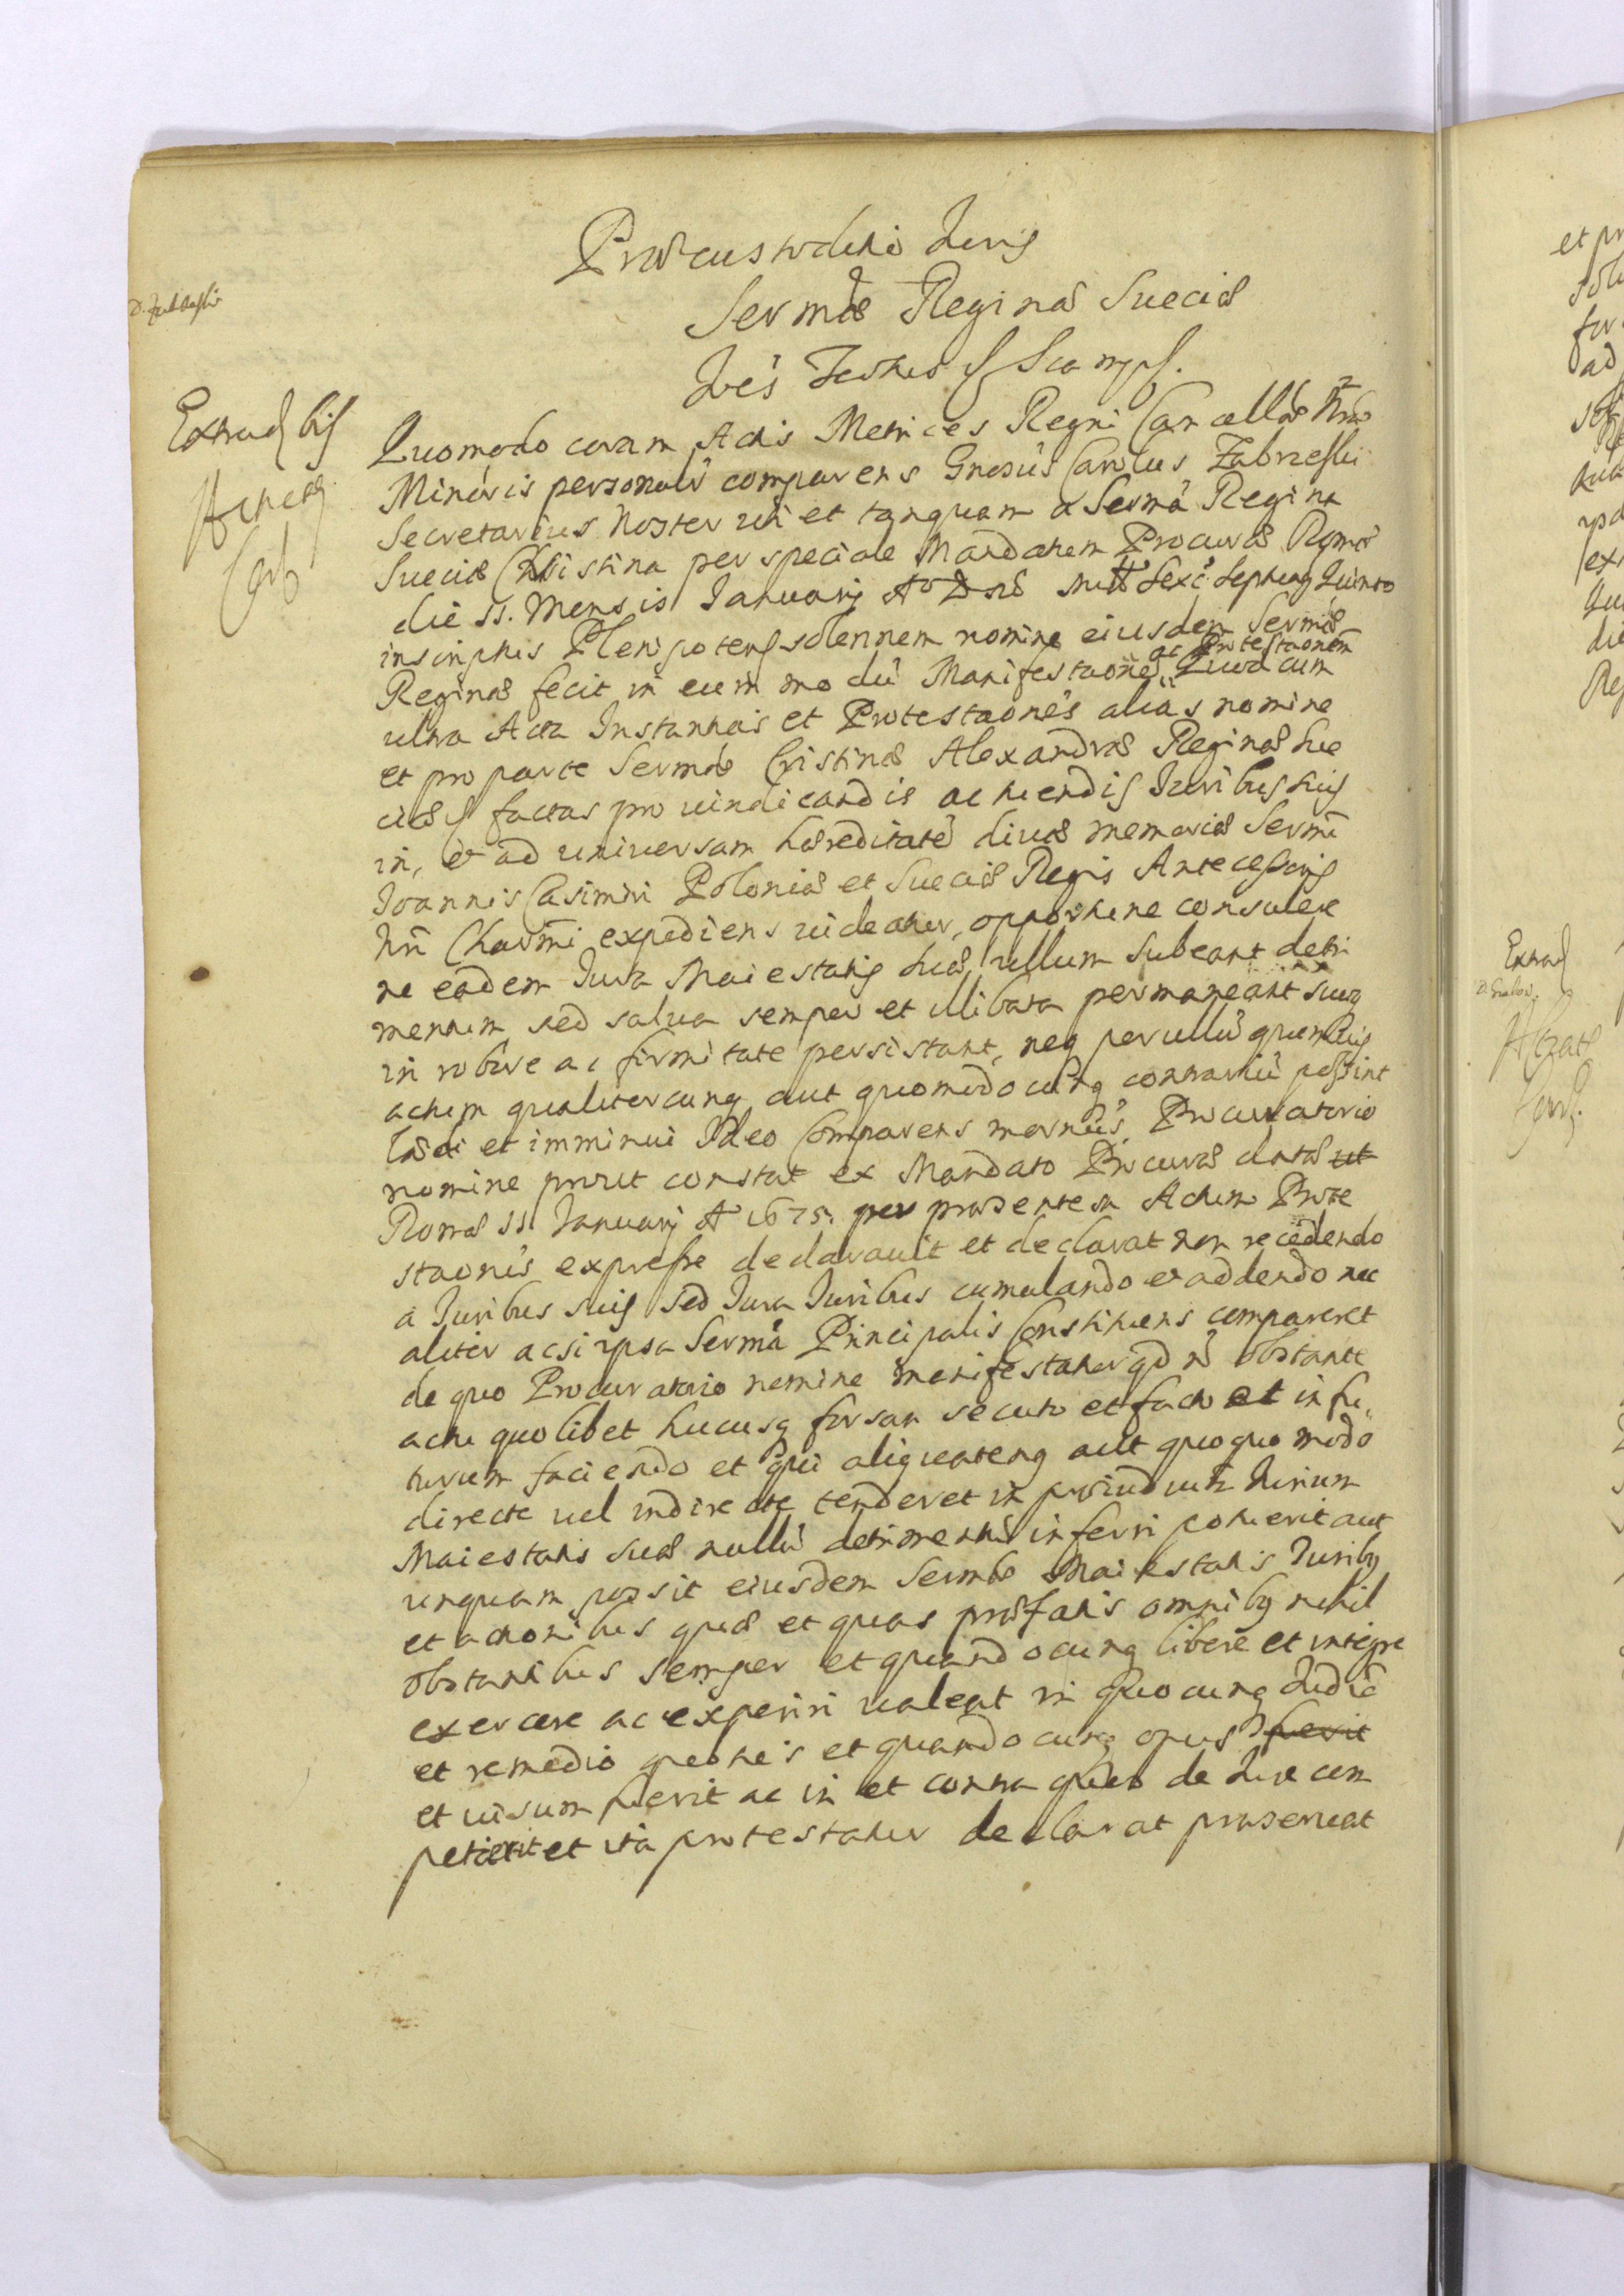 Præcustoditio Juris
Sermæ Reginæ Sueciæ
Extrad bis
Quomodo coram Actis Metrices Regni Cancellæ Nræ
Minoris personalr comparens Gnosus Carolus Zabrzeski
Secretarius Noster uti et tanquam a Serma Regina
Sueciæ Christina per speciale Mandatum Procuræ Romæ
die 11. Mensis Januarij Ao Dni Mill Sexc Septuag Quinto
inscriptis Plenipotens solennem nomine eiusdem Sermæ
ac Protestaonem
Reginæ fecit in eum modu Manifestaonem Quia cum
ultra Acta Instantias et Protestaones alias nomine
et pro parte Sermæ Cristinæ Alexandræ Reginæ Sue
ciæ factas pro uindicandis ac tuendis Juribus suis
in, et ad uniuersam hæreditate diuæ memoriæ Sermi
Joannis Casimiri Poloniæ et Sueciæ Regis Antecessoris
Nri Charmi expediens uideatur, opportune consulere
ne eadem Jura Maiestatis suæ ullum subeant detri
mentum sed salua semper et illibata permaneant suoq
in robore ac firmitate persistant, neq per ullu quemuis
actum qualitercunq aut quomodocunq contrariu possint
lædi et imminui Ideo Comparens Procuratorio
nomine prout constat ex Mandato Procuræ datæ ut
Romæ 11 Januarij Ao 1675. per præsentem Actum Prote
staonis expresse declarauit et declarat non recedendo
a Juribus suis sed Jura Juribus cumulando et addendo nec
aliter acsi ipsa Serma Principalis Constituens compareret
de quo Procuratorio nomine manifestatur qd no obstante
actu quolibet hucusq forsan secuto et facto et in fu„
turum faciendo et qui aliquatenq aut quoquo modo
directe uel indirecte tenderet in præiudicium Jurium
Maiestatis suæ nullu detrimentu inferri poterit aut
unquam possit eiusdem Sermæ Maiestatis Juribq
et actionibus quæ et quas præfatis omnibq nihil
obstantibus semper et quandocunq libere et integre
exercere ac experiri ualeat in quocunq Judic
et remedio quoties et quandocunq opus fuerit
et uisum fuerit ac in et contra quos de Jure com
petierit et ita protestatur declarat præseruat
Extrad